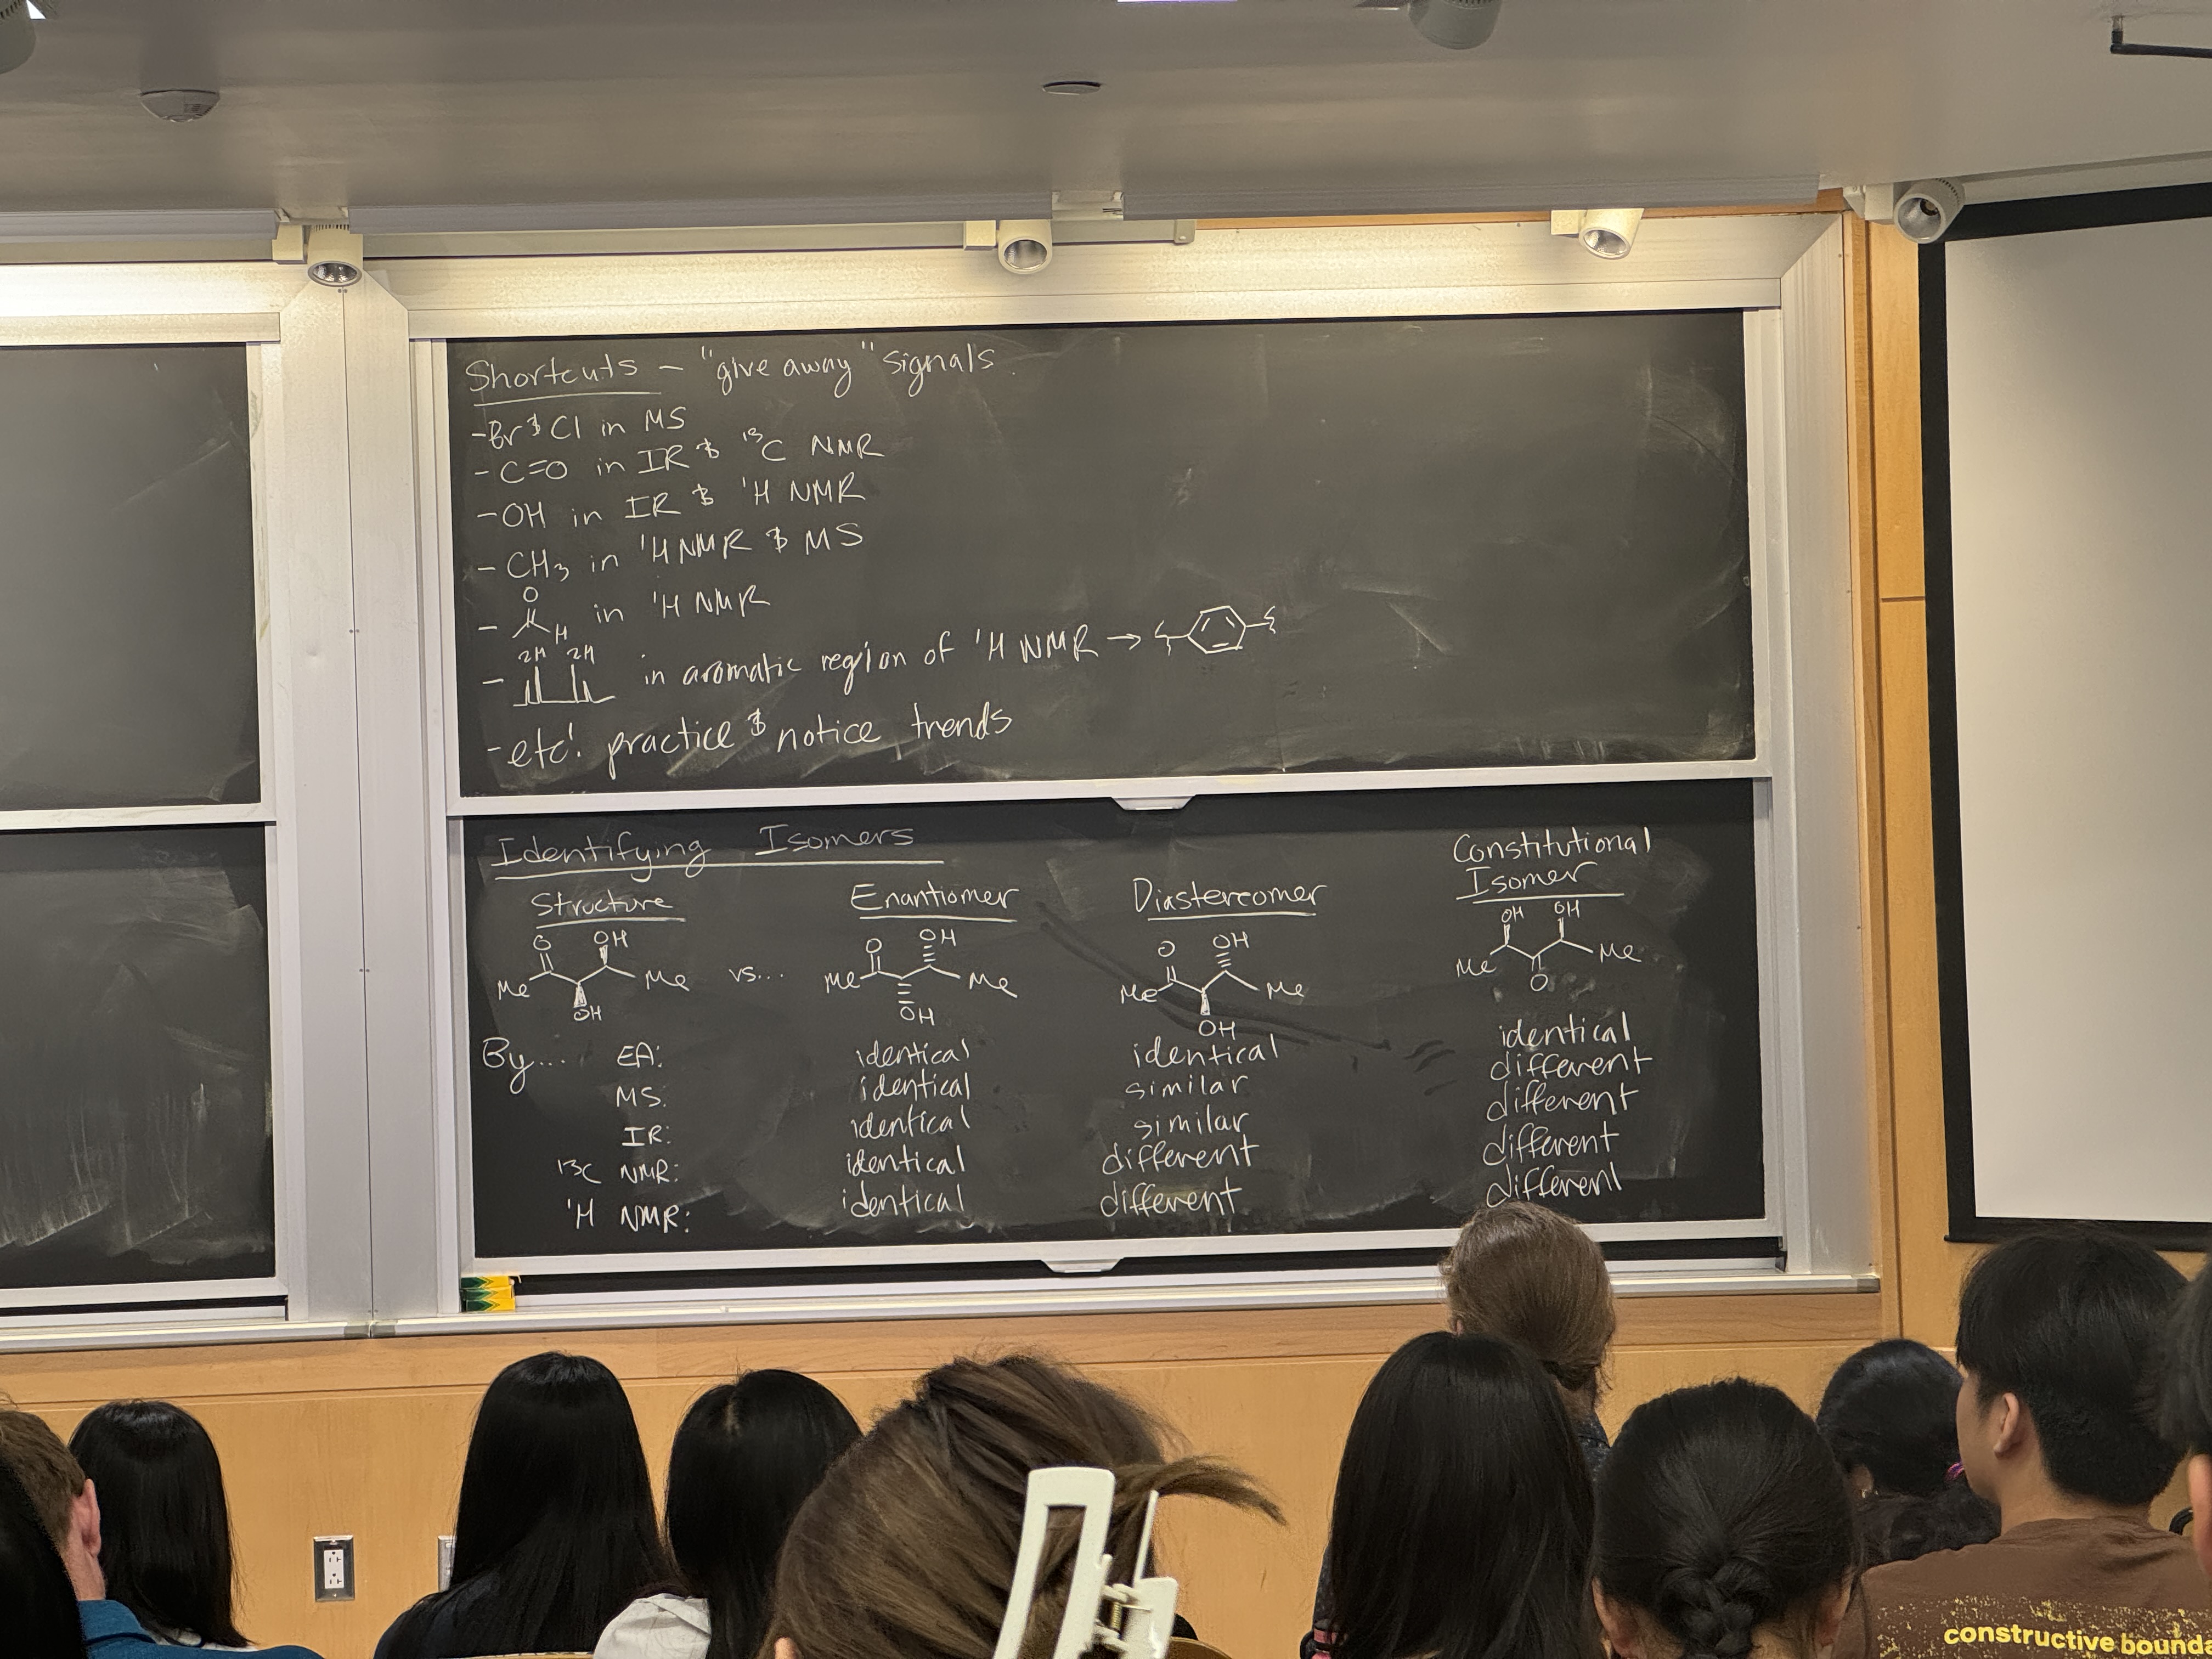 Shortcuts - "give away" signals.
- Br & Cl in MS
- C=O in IR & ¹³C NMR
- OH in IR & ¹H NMR
- CH₃ in ¹H NMR & MS
O
- H in ¹H NMR
2H 2H
- in aromatic region of ¹H NMR →
- etc! practice & notice trends
Identifying Isomers
Structure
Enantiomer
Diastereomer
Constitutional
Isomer
O OH
Me Me
OH
vs...
O OH
Me Me
OH
O OH
Me Me
OH
OH OH
Me Me
O
By... EA: identical identical identical
MS: identical similar different
IR: identical similar different
¹³C NMR: identical different different
¹H NMR: identical different different
constructive bounda